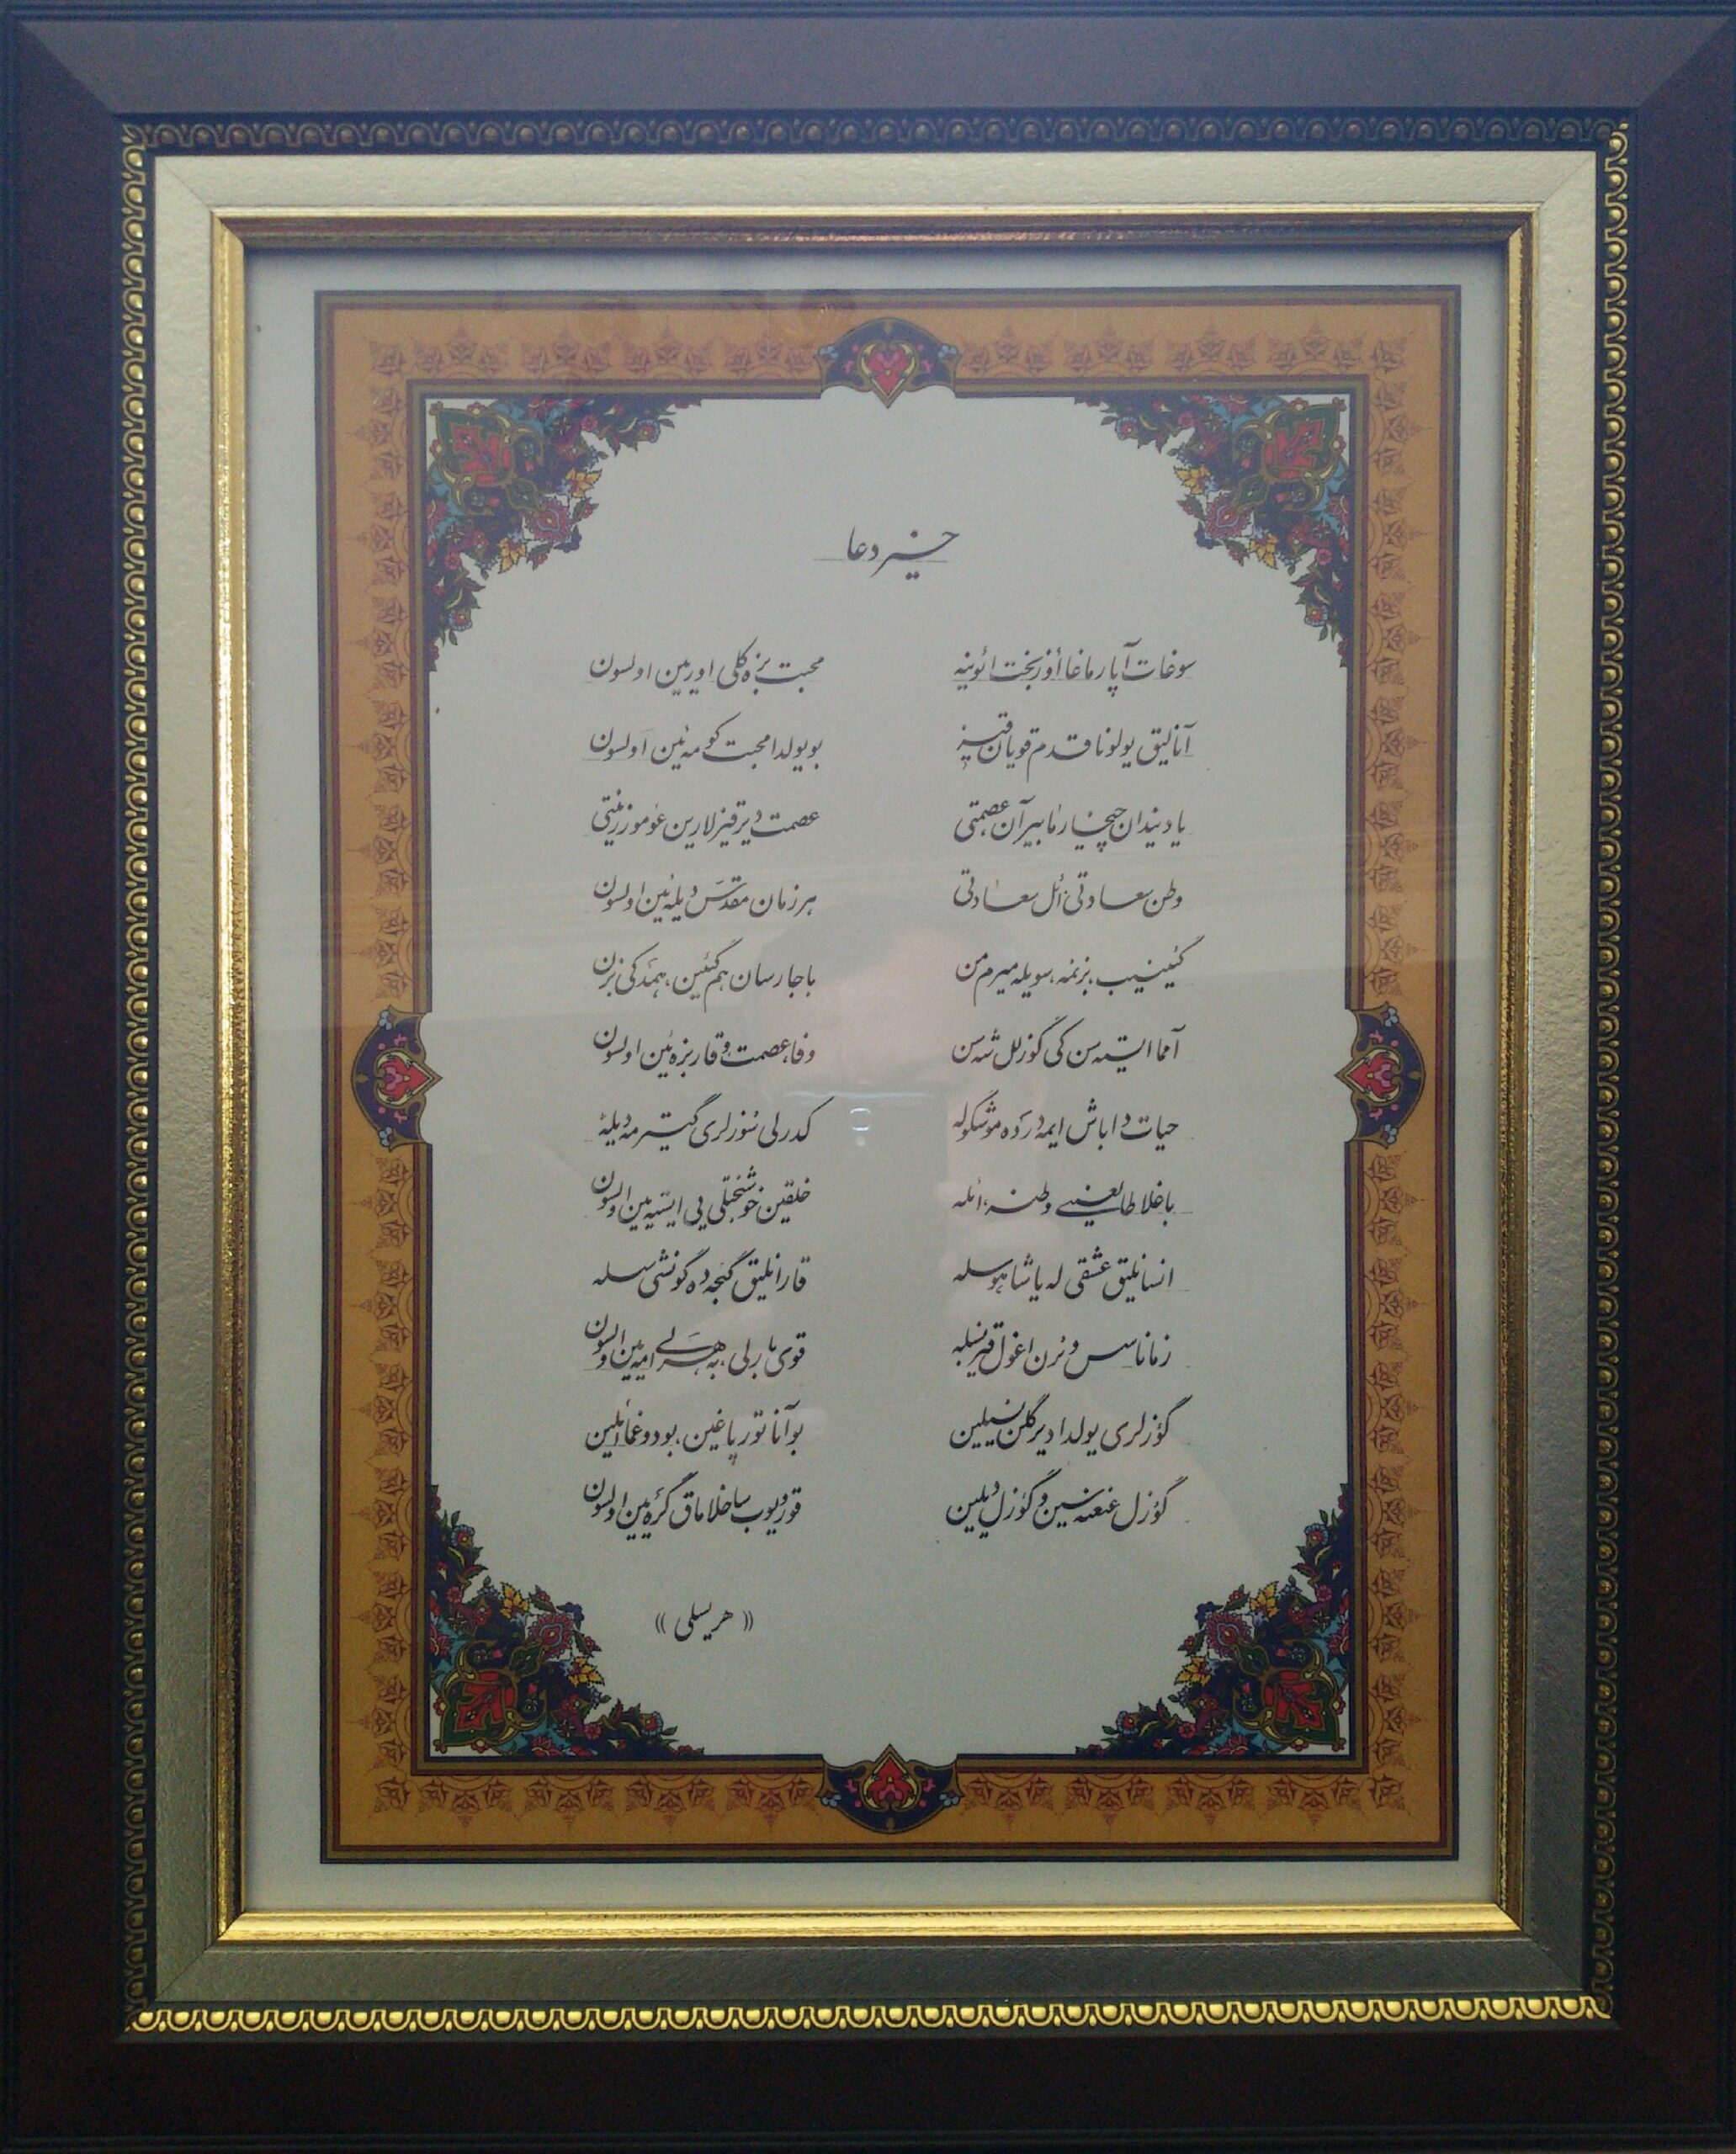 خیر دعا
سوغات آپارماغا أؤز بخت ائوینه محبت بزه کلی اورین اولسون
آنالیق یولونا قدم قویان قیز بو یولدا محبت کومه ئین اولسون
یادیندان چیخارما بیر آن عصمتی عصمت دیر قیزلارین عؤمور زینتی
وطن سعادتی، ائل سعادتی هر زمان مقدس دیله ئین اولسون
گئینیب، بزنمه، سویله میرم من باجارسان هم گئین، همده کی بزن
آمما ایسته سن کی گؤزللشه سن وفا، عصمت، وقار بزه ئین اولسون
حیات دا باش ایمه درده موشکوله کدرلی سؤزلری گتیرمه دیله
باغلا طالعینی وطنه، ائله خلقین خوشبختلی یی ایسته یین اولسون
انسانلیق عشقی له یاشا هوسله قارانلیق گئجه ده گونشی سسله
زمانا سس وئرن اغول قیز بسله قوی بارلی، بهره لی امه یین اولسون
گؤزلری یولدادیر گلن نسیلین بو آنا تورپاغین، بو دوغما ائلین
گؤزل عنعنه سین و گؤزل دیلین قورویوب ساخلاماق گره یین اولسون
« هریسلی »